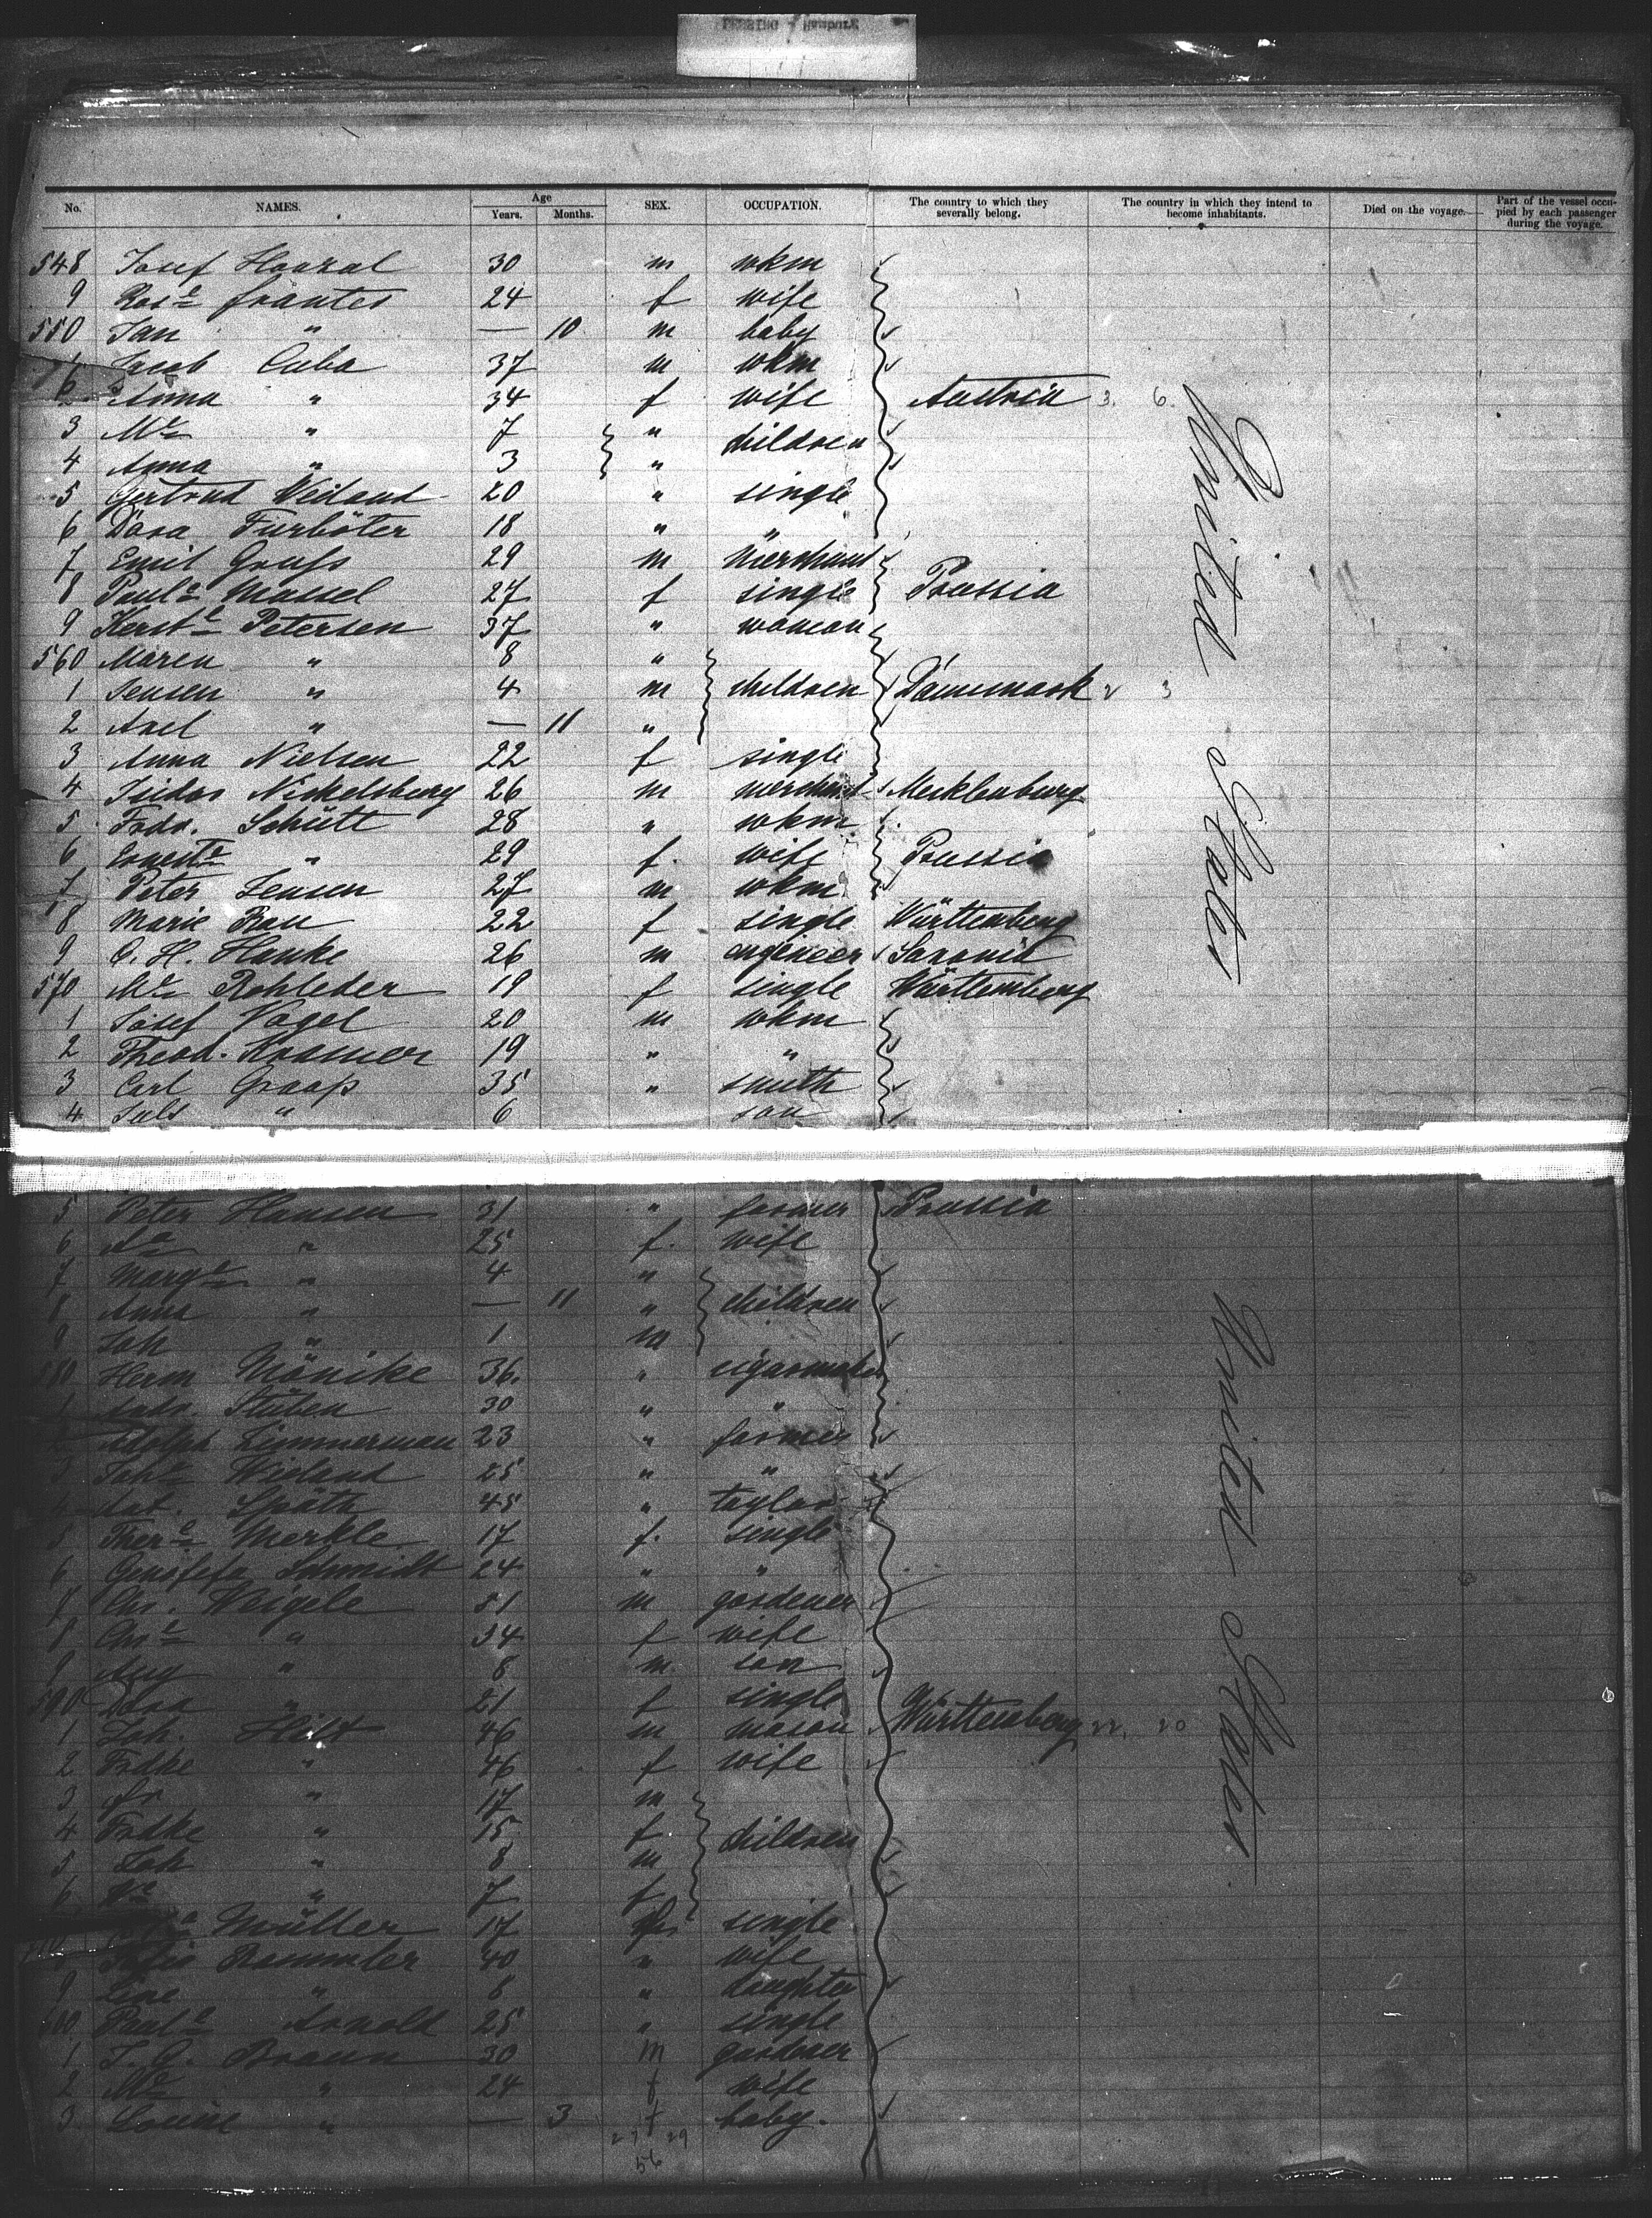 No. NAMES. Age Years. Months. SEX. OCCUPATION. The country to which they severally belong. The country in which they intend to become inhabitants. Died on the voyage. Part of the vessel occupied by each passenger during the voyage.
548 Josef 30 m wkm
9 24 f wife
550 Jan " — 10 m baby
Jacob Cuba 37 m wkm
2 Anna " 34 f wife Austria 3. 6.
3 Me " 7 " children
4 Anna " 3 "
5 Gertrud Weiland 20 " single
6 Dora Furböter 18 " "
7 Emil 29 m merchant
8 Paule Massel 27 f single Prussia
9 Kerste Petersen 37 " woman
560 Maren " 8 "
1 Jensen " 4 m children Dännemark 2 3
2 Axel " — 11 "
3 Anna Nielsen 22 f single
4 Isidor Nickelsburg 26 m merchant Mecklenburg
5 Frdr. Schütt 28 " wkm
6 Erneste " 29 f. wife Prussia
7 Peter Jensen 27 m wkm
8 Marie Rau 22 f single Württemberg
9 O. H. Hanke 26 m engineer Saxonia
570 Me Rohleder 19 f single Württemberg
1 Josef Vogel 20 m wkm
2 Theod. Kramer 19 " "
3 Carl Graap 35 " smith
4 Juls " 6 son
5 Peter Hansen 31 " farmer Prussia
6 " 25 f. wife
7 Marge " 4 "
8 Anna " — 11 " children
9 Joh " 1 m
580 Herm Mönike 36. " cigarmaker
1 Andr. Stüben 30 " "
2 Adolph Zimmerman 23 " farmer
3 Wieland 25 " "
4 Späth 45 " taylor
5 There Merkle 17 f. single
6 Schmidt 24 " "
7 Chr. Weigele 51 m gardener
8 Chre " 54 f wife
9 Aug " 8 m son
590 Dora " 21 f single
1 Joh. Hilt 46 m mason Württemberg 22. 20
2 Frdke " 46 f wife
3 " 17 m
4 Frdke " 15 f children
5 Joh " 8 m
6 " 7 f
Müller 17 single
Rommler 40 " wife
9 Line " 8 " daughter
600 Paule Arnold 25 " single
1 J. G. Braun 30 m gardener
2 Me " 24 f wife
3 Louise " — 3 f baby.
27 29
56
United States
United States